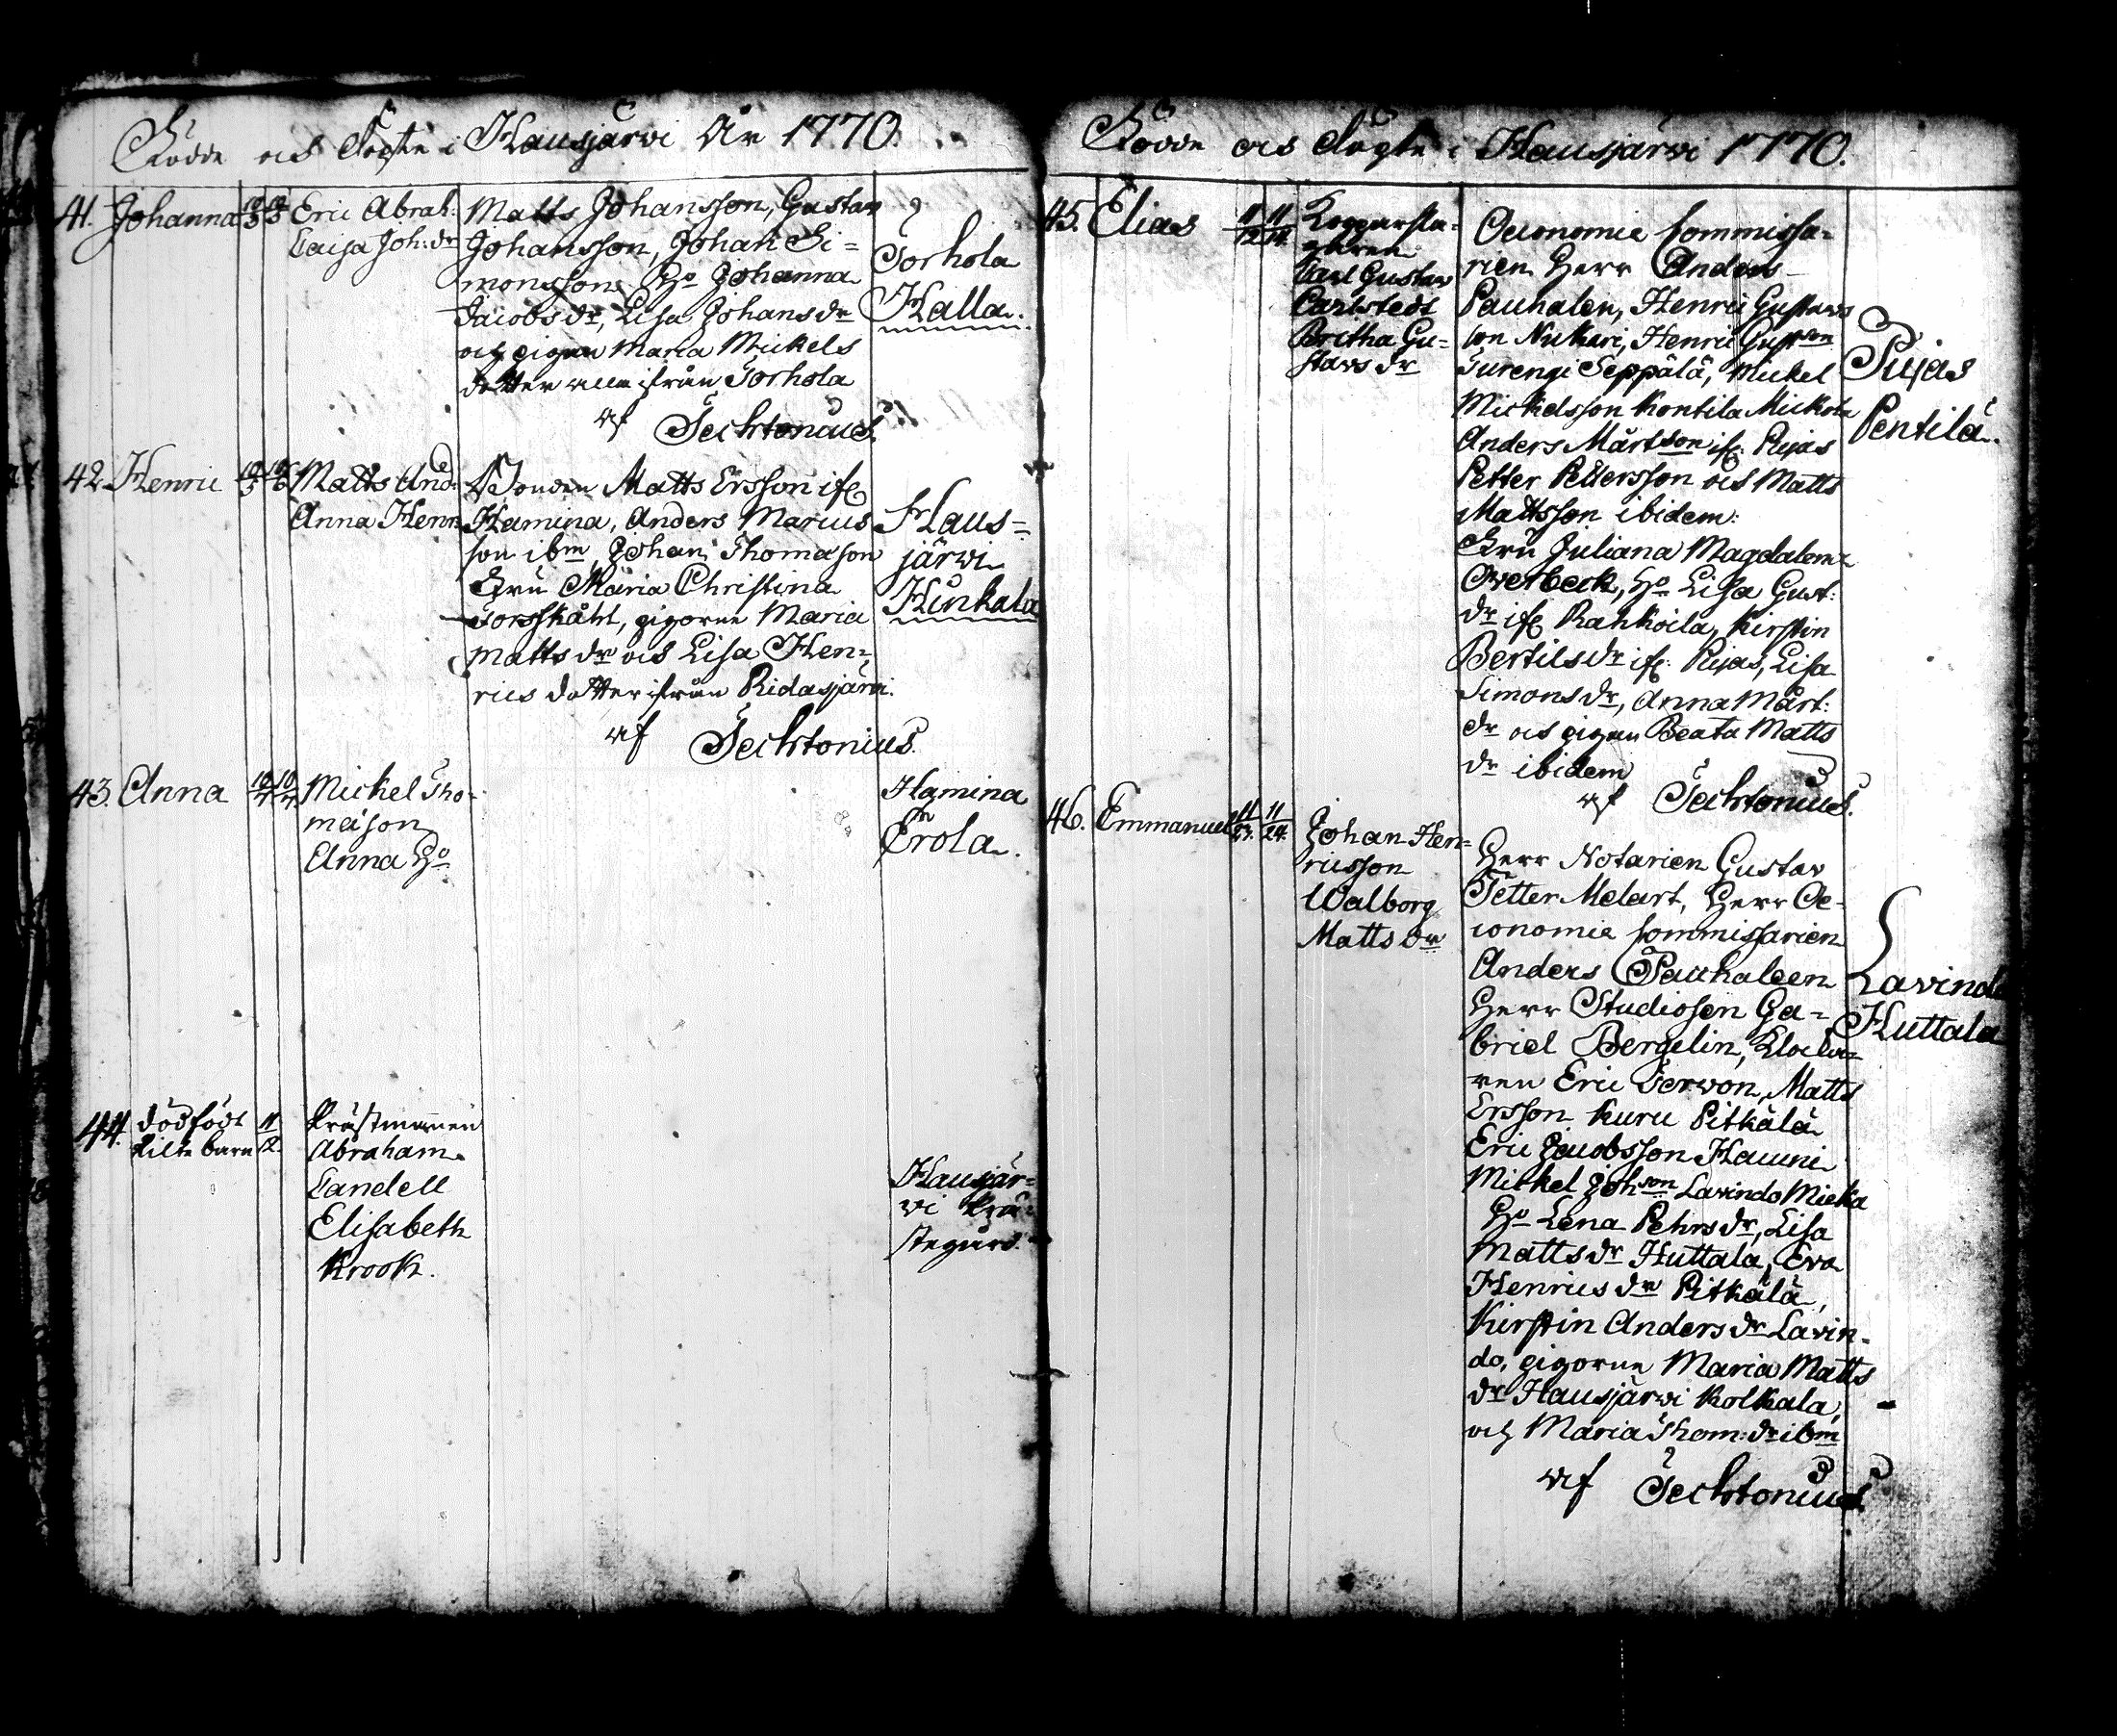 Födde och Döpte i Hausjärwi År 1770.
41. Johanna 10/3 10/3 Eric Abrah:
Caisa Joh: dr
Matts Johansson, Gustav
Johansson, Johan Si=
monsson Ho Johanna
Jacobs dr, Lisa Johans dr
och pigan Maria Mickels
dotter alla ifrån Torhola
af Techtonius
Torhola
Halla.
42. Henric Matts And:
Anna Henr:
Bonden Matts Ersson if:
Hamina, Anders Marcus
son ibm, Johan Thomason
Fru Maria Christina
Forsskåhl, pigorne Maria
Matts dr och Lisa Hen=
rics dotter ifrån Ridasjärvi.
af Techtonius.
Haus=
järwi
Hinkala
43. Anna Mickel Tho=
mason
Anna Ho
Hamina
Erola.
44. dödfödt
Pilte barn 11/12.
Prästmannen
Abraham
Landell
Elisabeth
Krook.
Hausjär=
wi Prä=
stegård.
Födde och Döpte i Hausjärwi 1770.
45. Elias 11/12 11/14
Kopparsla=
garen
Carl Gustav
Carlstedt
Britha Gu=
stavs dr
Oeconomie Commissa=
rien Herr Anders
Pauhalen, Henric Gustavs
son Nukari, Henric Gustson
Turengi Seppälä, Mickel
Mickelsson Kontila Mickola
Anders Mårtson if: Pujas
Petter Pettersson och Matts
Mattsson ibidem:
Fru Juliana Magdalena
Owerbeck, Ho Lisa Gust:
dr if: Rahkoila, Kirstin
Bertils dr if: Pujas, Lisa
Simons dr, Anna Mårt:
dr och pigan Beata Matts
dr ibidem
af Techtonius.
Pujas
Pentilä.
46. Emmanuel 11/23. 11/24.
Johan Hen=
ricsson
Walborg
Matts dr
Herr Notarien Gustav
Petter Melart, Herr Oe=
conomie Commissarien
Anders Pauhaleen
Herr Studiosen Ga=
briel Bergelin, Klocka=
ren Eric Servon, Matts
Ersson Kuru Pitkälä
Eric Jacobsson Hauni
Mickel Johson Lavindo Micka
Ho Lena Pehrs dr, Lisa
Matts dr Huttala, Eva
Henrics dr Pitkälä,
Kirstin Anders dr Lavin=
do, pigorne Maria Matts
dr Hausjärwi Kolkala,
och Maria Thom: dr ibm
af Techtonius
Lavindo
Huttala